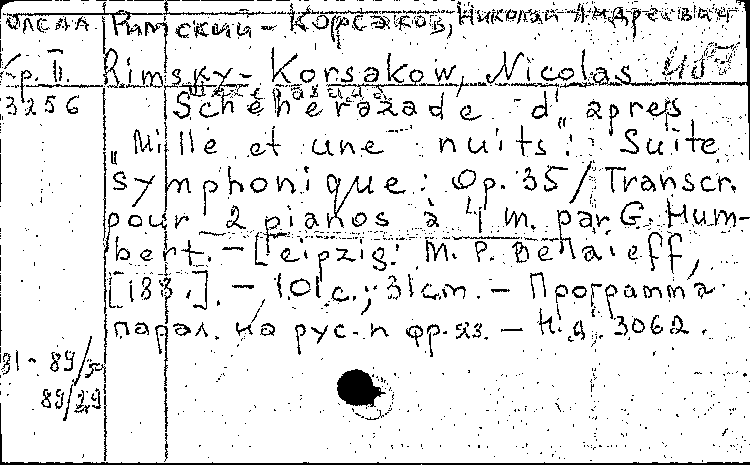 Римский-Корсаков, Николай Андреевич
Rimsky-Korsakow, Nicolas 487
3256 Schéhérazade d'apres
„Mille et une nuits": Suite
symphonique: Op. 35 / Transcr.
pour 2 pianos à 4 m. par G. Hum-
bert. – Leipzig: M. P. Belaieff,
[188.]. – 101 с.; 31 cm. – Программа
парал. на рус. и фр. яз. – Н. д. 3062.
81-89/30
89/29